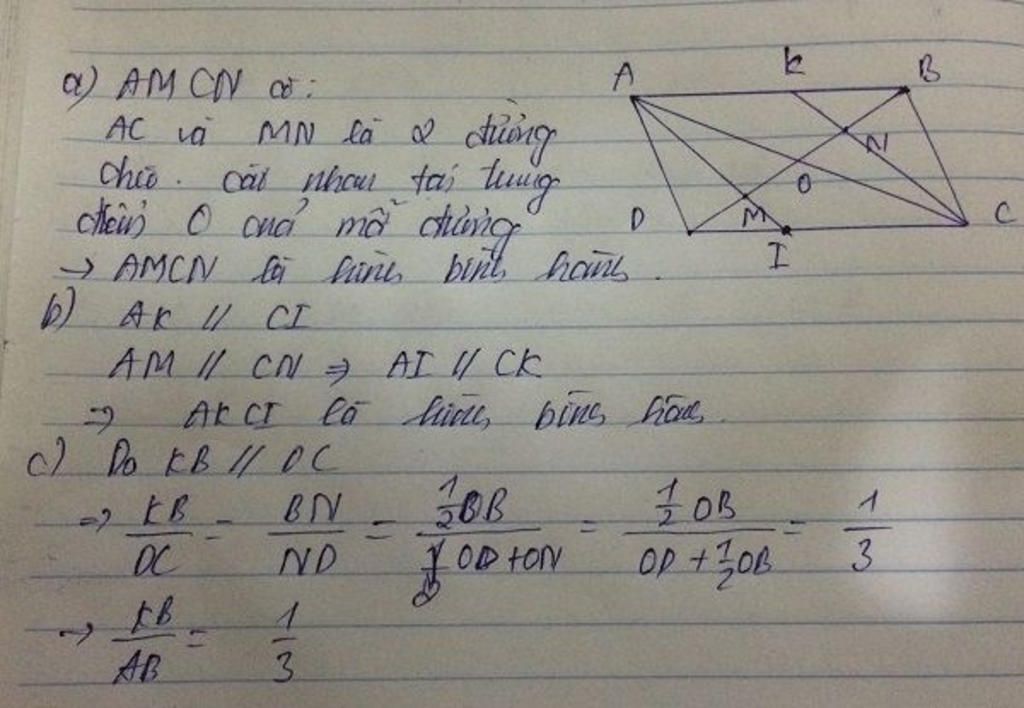 a) AMCN có:
AC và MN là 2 đường
chéo. cắt nhau tại trung
điểm O của mỗi đường
→ AMCN là hình bình hành.
b) AK // CI
AM // CN ⇒ AI // CK
⇒ AKCI là hình bình hành.
c) Do KB // DC
⇒ KB/DC = BN/ND = 1/2OB/OD+ON = 1/2OB/OD+1/2OB = 1/3
→ KB/AB = 1/3
A K B
N
O
D M C
I